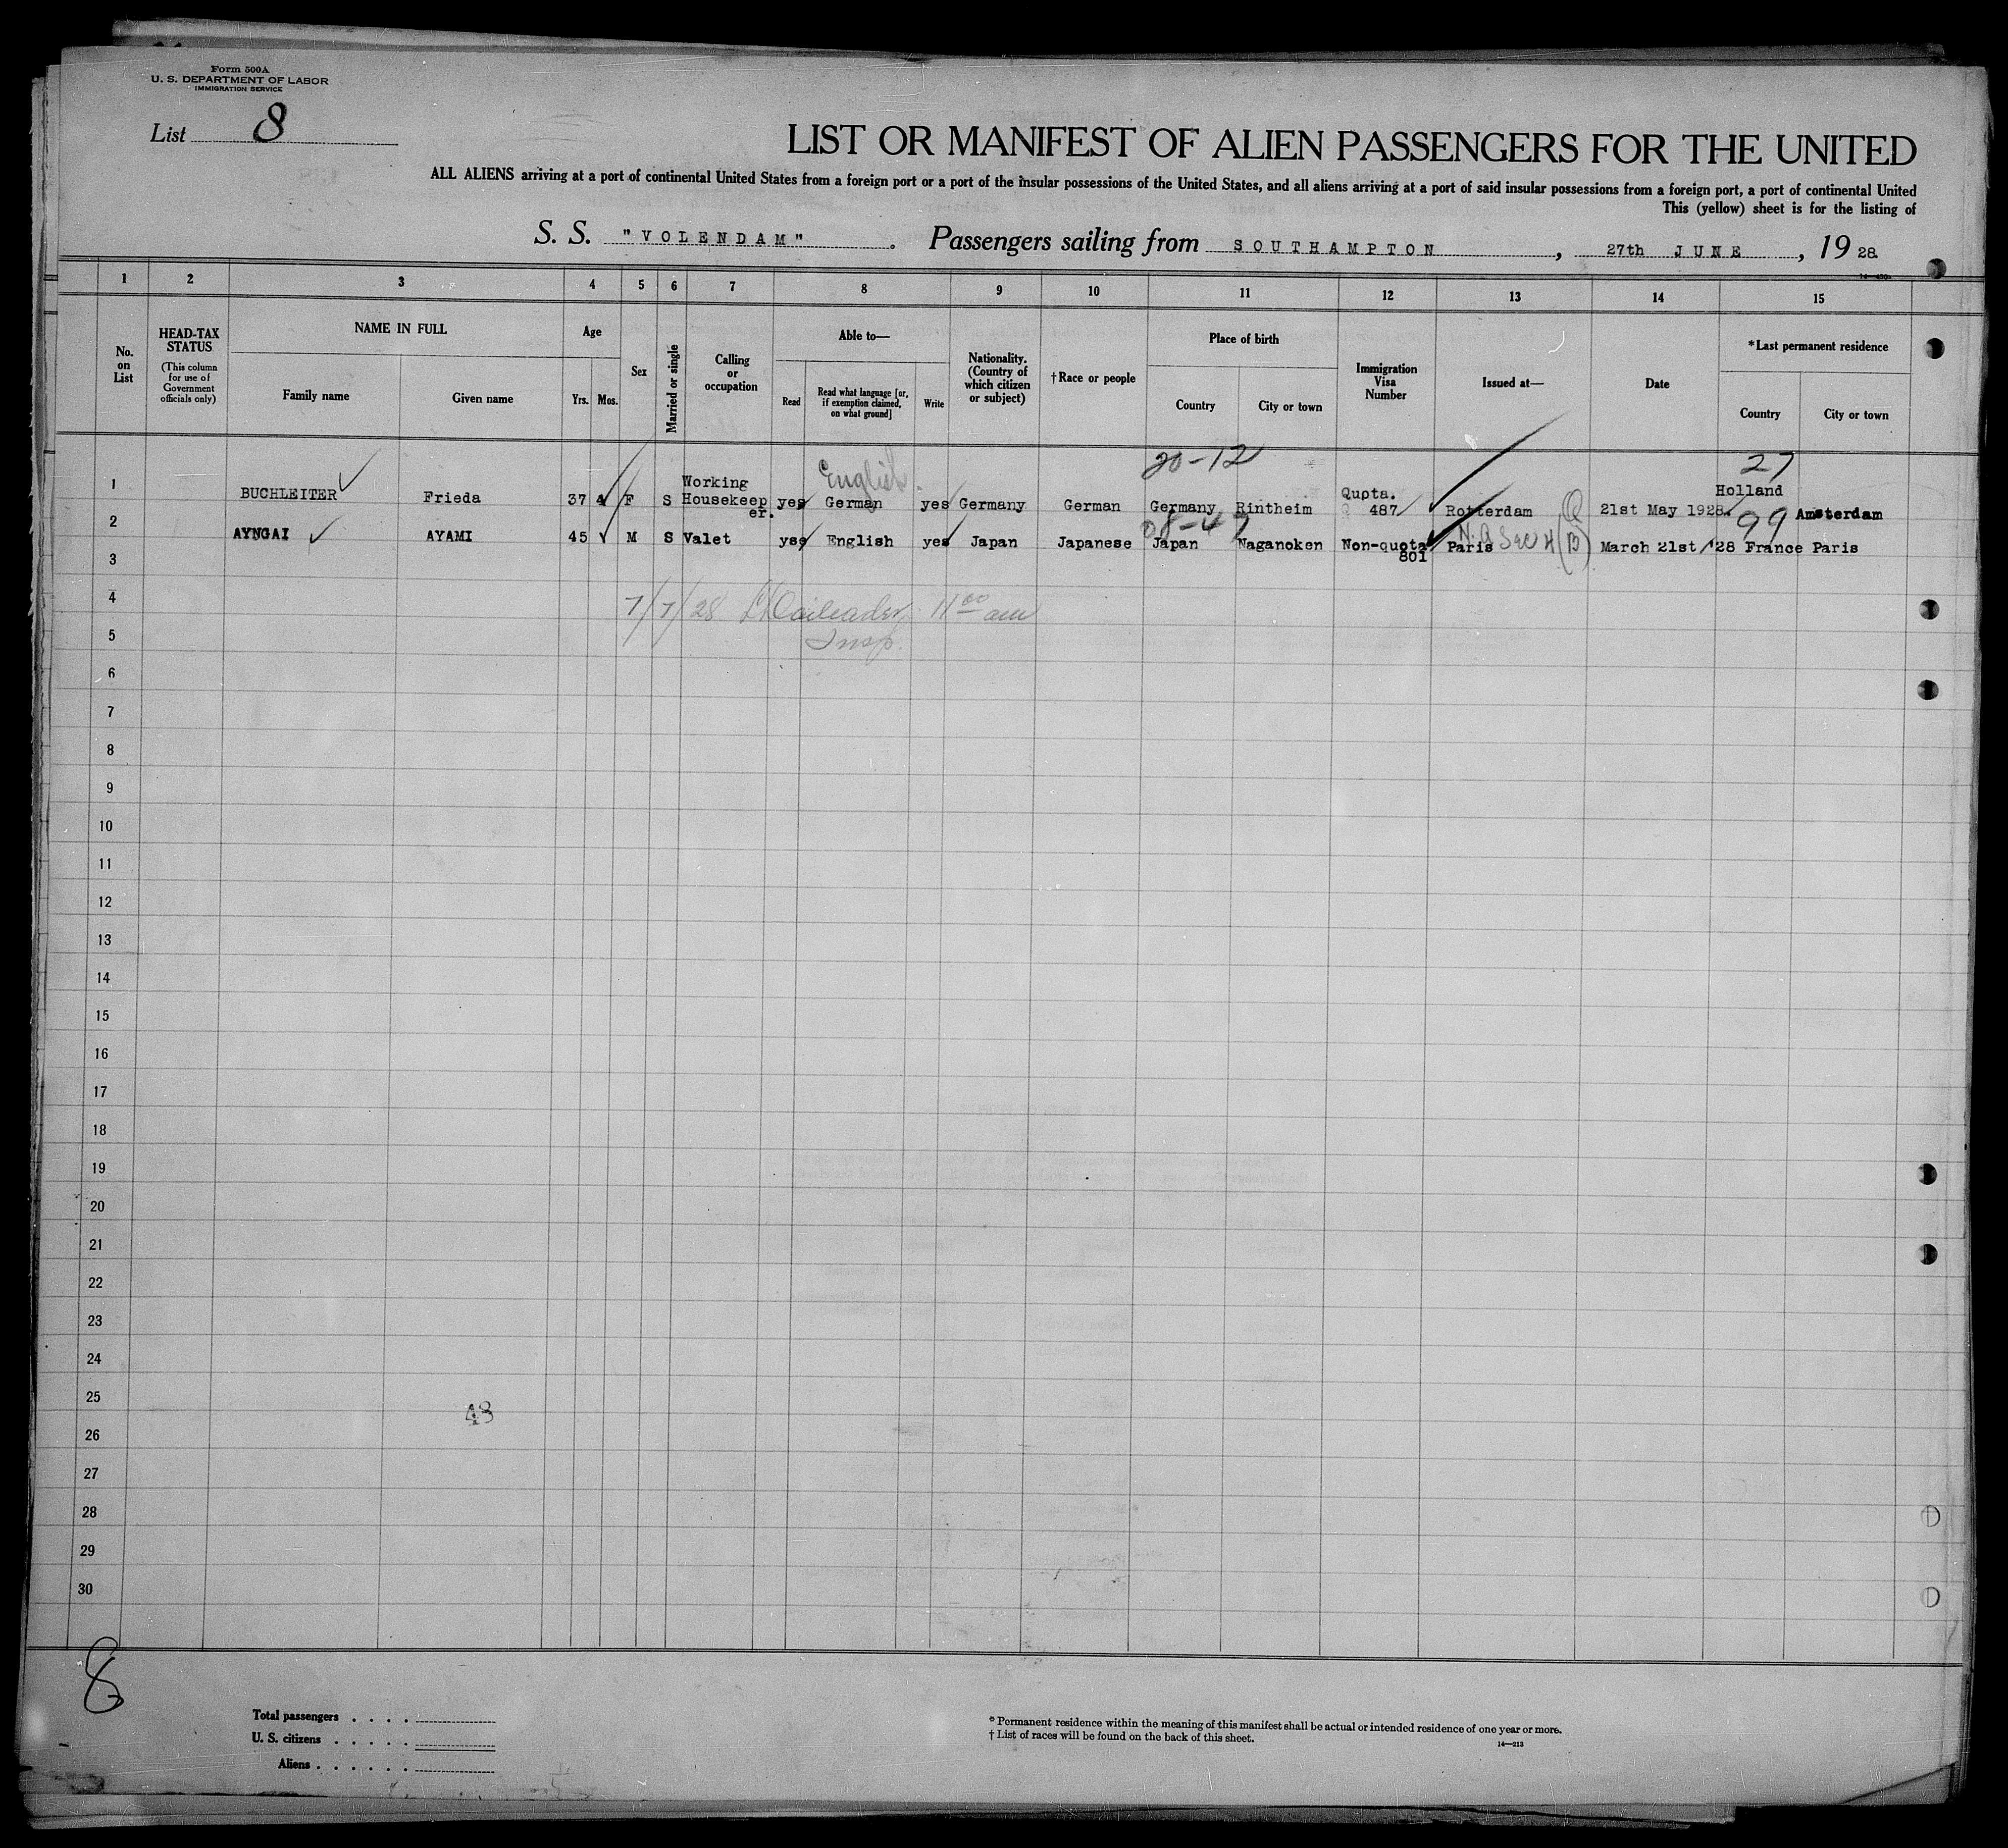 Form 500A
U. S. DEPARTMENT OF LABOR
IMMIGRATION SERVICE
List 8
LIST OR MANIFEST OF ALIEN PASSENGERS FOR THE UNITED
ALL ALIENS arriving at a port of continental United States from a foreign port or a port of the insular possessions of the United States, and all aliens arriving at a port of said insular possessions from a foreign port, a port of continental United
This (yellow) sheet is for the listing of
S. S. "VOLENDAM". Passengers sailing from SOUTHAMPTON, 27th JUNE, 1928
1 2 3 4 5 6 7 8 9 10 11 12 13 14 15
No. on List
HEAD-TAX STATUS
(This column for use of Government officials only)
NAME IN FULL
Family name Given name
Age
Yrs. Mos.
Sex
Married or single
Calling or occupation
Able to—
Read
Read what language [or, if exemption claimed, on what ground]
Write
Nationality. (Country of which citizen or subject)
†Race or people
Place of birth
Country City or town
Immigration Visa Number
Issued at—
Date
*Last permanent residence
Country City or town
20-12 27
English
1 BUCHLEITER Frieda 37 4 F S Working Housekeeper. yes German yes Germany German Germany Rintheim Quota. 487 Rotterdam Q 21st May 1928. Holland Amsterdam
08-47 99
N.Q Sec 4 (B)
2 AYNGAI AYAMI 45 M S Valet yes English yes Japan Japanese Japan Naganoken Non-quota 801 Paris March 21st '28 France Paris
3
4
7/7/28 11 00 am
5
Insp.
6
7
8
9
10
11
12
13
14
15
16
17
18
19
20
21
22
23
24
25
48
26
27
28
29
30
8
Total passengers . . . .
U. S. citizens . . . . .
Aliens . . . . . .
* Permanent residence within the meaning of this manifest shall be actual or intended residence of one year or more.
† List of races will be found on the back of this sheet.
14—213